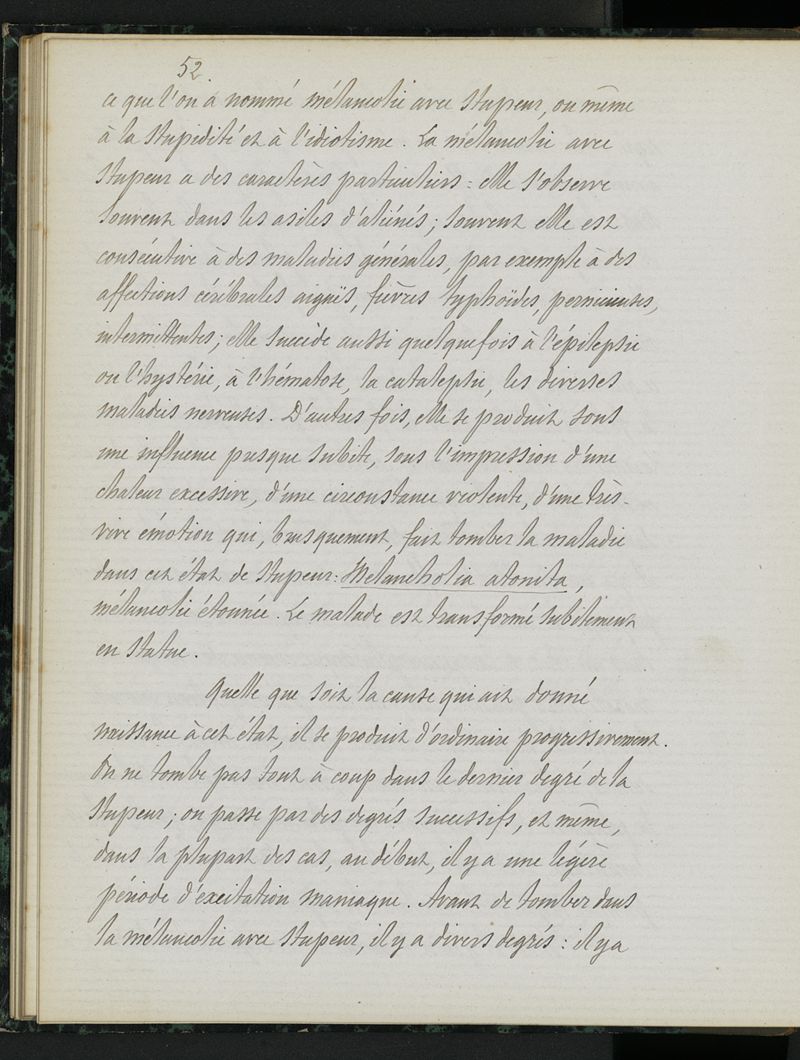 52
ce que l'on a nommé mélancolie avec stupeur, ou même
à la stupidité et à l'idiotisme. La mélancolie avec
stupeur a des caractères particuliers : elle s'observe
souvent dans les asiles d'aliénés ; souvent elle est
consécutive à des maladies générales, par exemple à des
affections cérébrales aiguës, fièvres typhoïdes, pernicieuses,
intermittentes ; elle succède aussi quelquefois à l'épilepsie
ou l'hystérie, à l'hématose, la catalepsie, les diverses
maladies nerveuses. D'autres fois, elle se produit sous
une influence presque subite, sous l'impression d'une
chaleur excessive, d'une circonstance violente, d'une très-
vive émotion qui, brusquement, fait tomber la maladie
dans cet état de stupeur : Melancholia atonita,
mélancolie étonnée. Le malade est transformé subitement
en statue.
Quelle que soit la cause qui ait donné
naissance à cet état, il se produit d'ordinaire progressivement.
On ne tombe pas tout à coup dans le dernier degré de la
stupeur ; on passe par des degrés successifs, et même,
dans la plupart des cas, au début, il y a une légère
période d'excitation maniaque. Avant de tomber dans
la mélancolie avec stupeur, il y a divers degrés : il y a